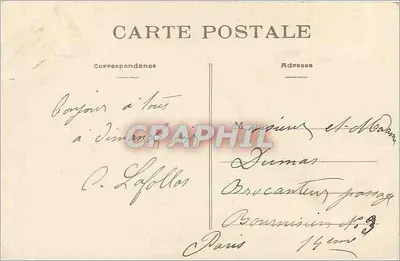 CARTE POSTALE
Correspondance
Adresse
Bonjour à tous
à dimanche
C. Lafollas
CPRAPHIL
Monsieur et Madame
Dumas
Brocanteur passage
Bournisien No 3
Paris 14eme